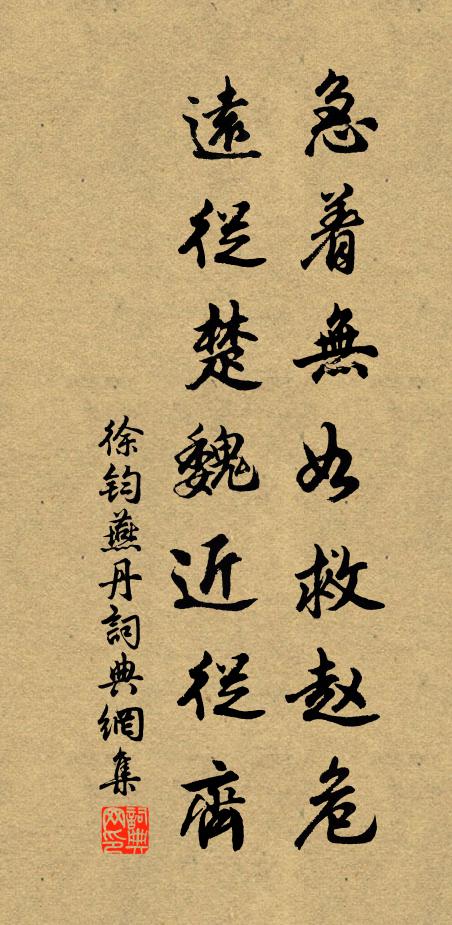 急着無如救赵危
遠從楚魏近從齊
徐鈞燕丹詞典網集
詞典
网印